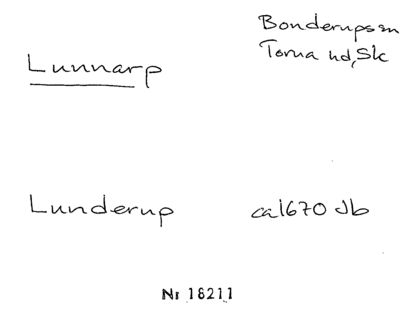 Bonderups sn
Torna hd, Sk
Lunnarp
Lunderup ca 1670 Jb
Nr 18211